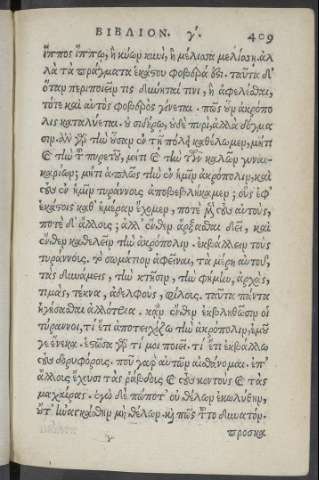 ΒΙΒΛΙΟΝ. γ΄. 409
ἵππος ἵππῳ, ἢ κύων κυνὶ, ἢ μέλισσα μελίσσῃ. ἀλ
λὰ τὰ πράγματα ἑκάστου φοβερὰ ὅδι. ταῦτα δ'
ὅταν περιποιεῖν τις δύνηταί τινι, ἢ ἀφελέσθαι,
τότε καὶ αὐτὸς φοβερὸς γίνεται. πῶς οὖν ἀκρόπο
λις καταλύεται. οὐ σιδήρῳ, οὐδὲ πυρὶ, ἀλλὰ δόγμα
σιν. ἂν γὰρ τὴν οὖσαν ἐν τῇ πόλει καθέλωμεν, μήτι
καὶ τὴν τοῦ πυρετοῦ, μήτι καὶ τὴν τῶν καλῶν γυναι-
καρίων; μήτι ἁπλῶς τὴν ἐν ἡμῖν ἀκρόπολιν, καὶ
τοὺς ἐν ἡμῖν τυράννους ἀποβεβλήκαμεν; οὓς ἐφ'
ἑκάστοις καθ' ἡμέραν ἔχομεν, ποτὲ μὲν τοὺς αὐτοὺς,
ποτὲ δ' ἄλλους; ἀλλ' ἔνθεν ἄρξασθαι δεῖ, καὶ
ἔνθεν καθελεῖν τὴν ἀκρόπολιν. ἐκβάλλειν τοὺς
τυράννους. τὸ σωμάτιον ἀφεῖναι, τὰ μέρη αὐτοῦ,
τὰς δυνάμεις, τὴν κτῆσιν, τὴν φήμην, ἀρχὰς,
τιμὰς, τέκνα, ἀδελφοὺς, φίλους. ταῦτα πάντα
ἡγήσασθαι ἀλλότρια. κἂν ἔνθεν ἐκβληθῶσιν οἱ
τύραννοι, τί ἔτι ἀποτειχίζω τὴν ἀκρόπολιν, ἐμοῦ
γε ἕνεκα. ἑστῶσα γὰρ τί μοι ποιεῖ. τί ἔτι ἐκβάλλω
τοὺς δορυφόρους. ποῦ γὰρ αὐτῶν αἰσθάνομαι. ἐπ'
ἄλλους ἔχουσι τὰς ῥάβδους καὶ τοὺς κοντοὺς καὶ τὰς
μαχαίρας. ἐγὼ δὲ πώποτ' οὐ θέλων ἐκωλύθην,
οὔτ' ἠναγκάσθην μὴ θέλων. καὶ πῶς τοῦτο δυνατόν.
γ προσκα